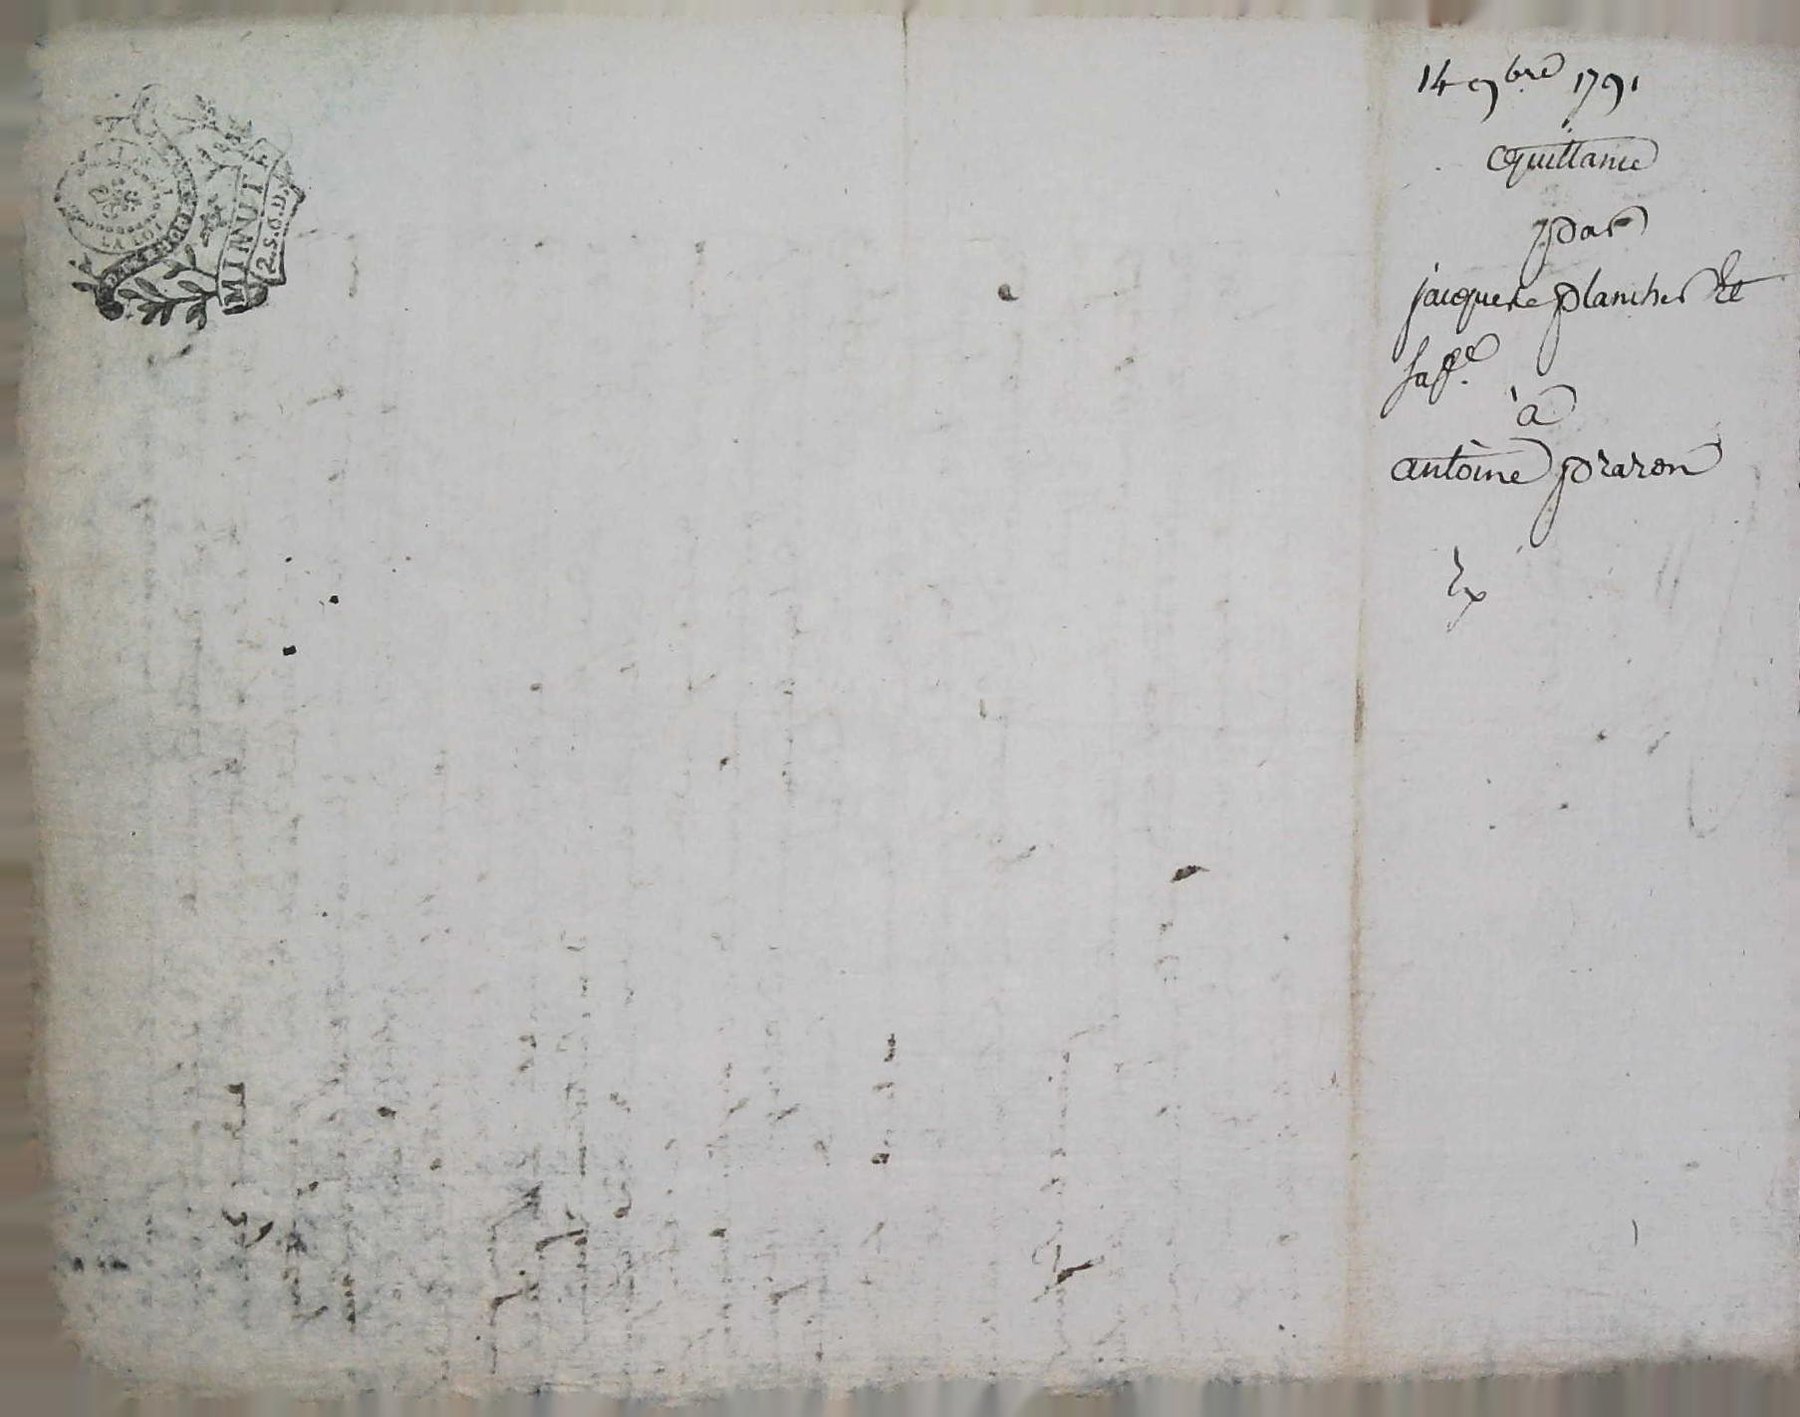 MINUTE
2.S.6.D.
LA LOI
14 9bre 1791
quittance
par
jacques planches et
sa fe
à
antoine praron
Ex